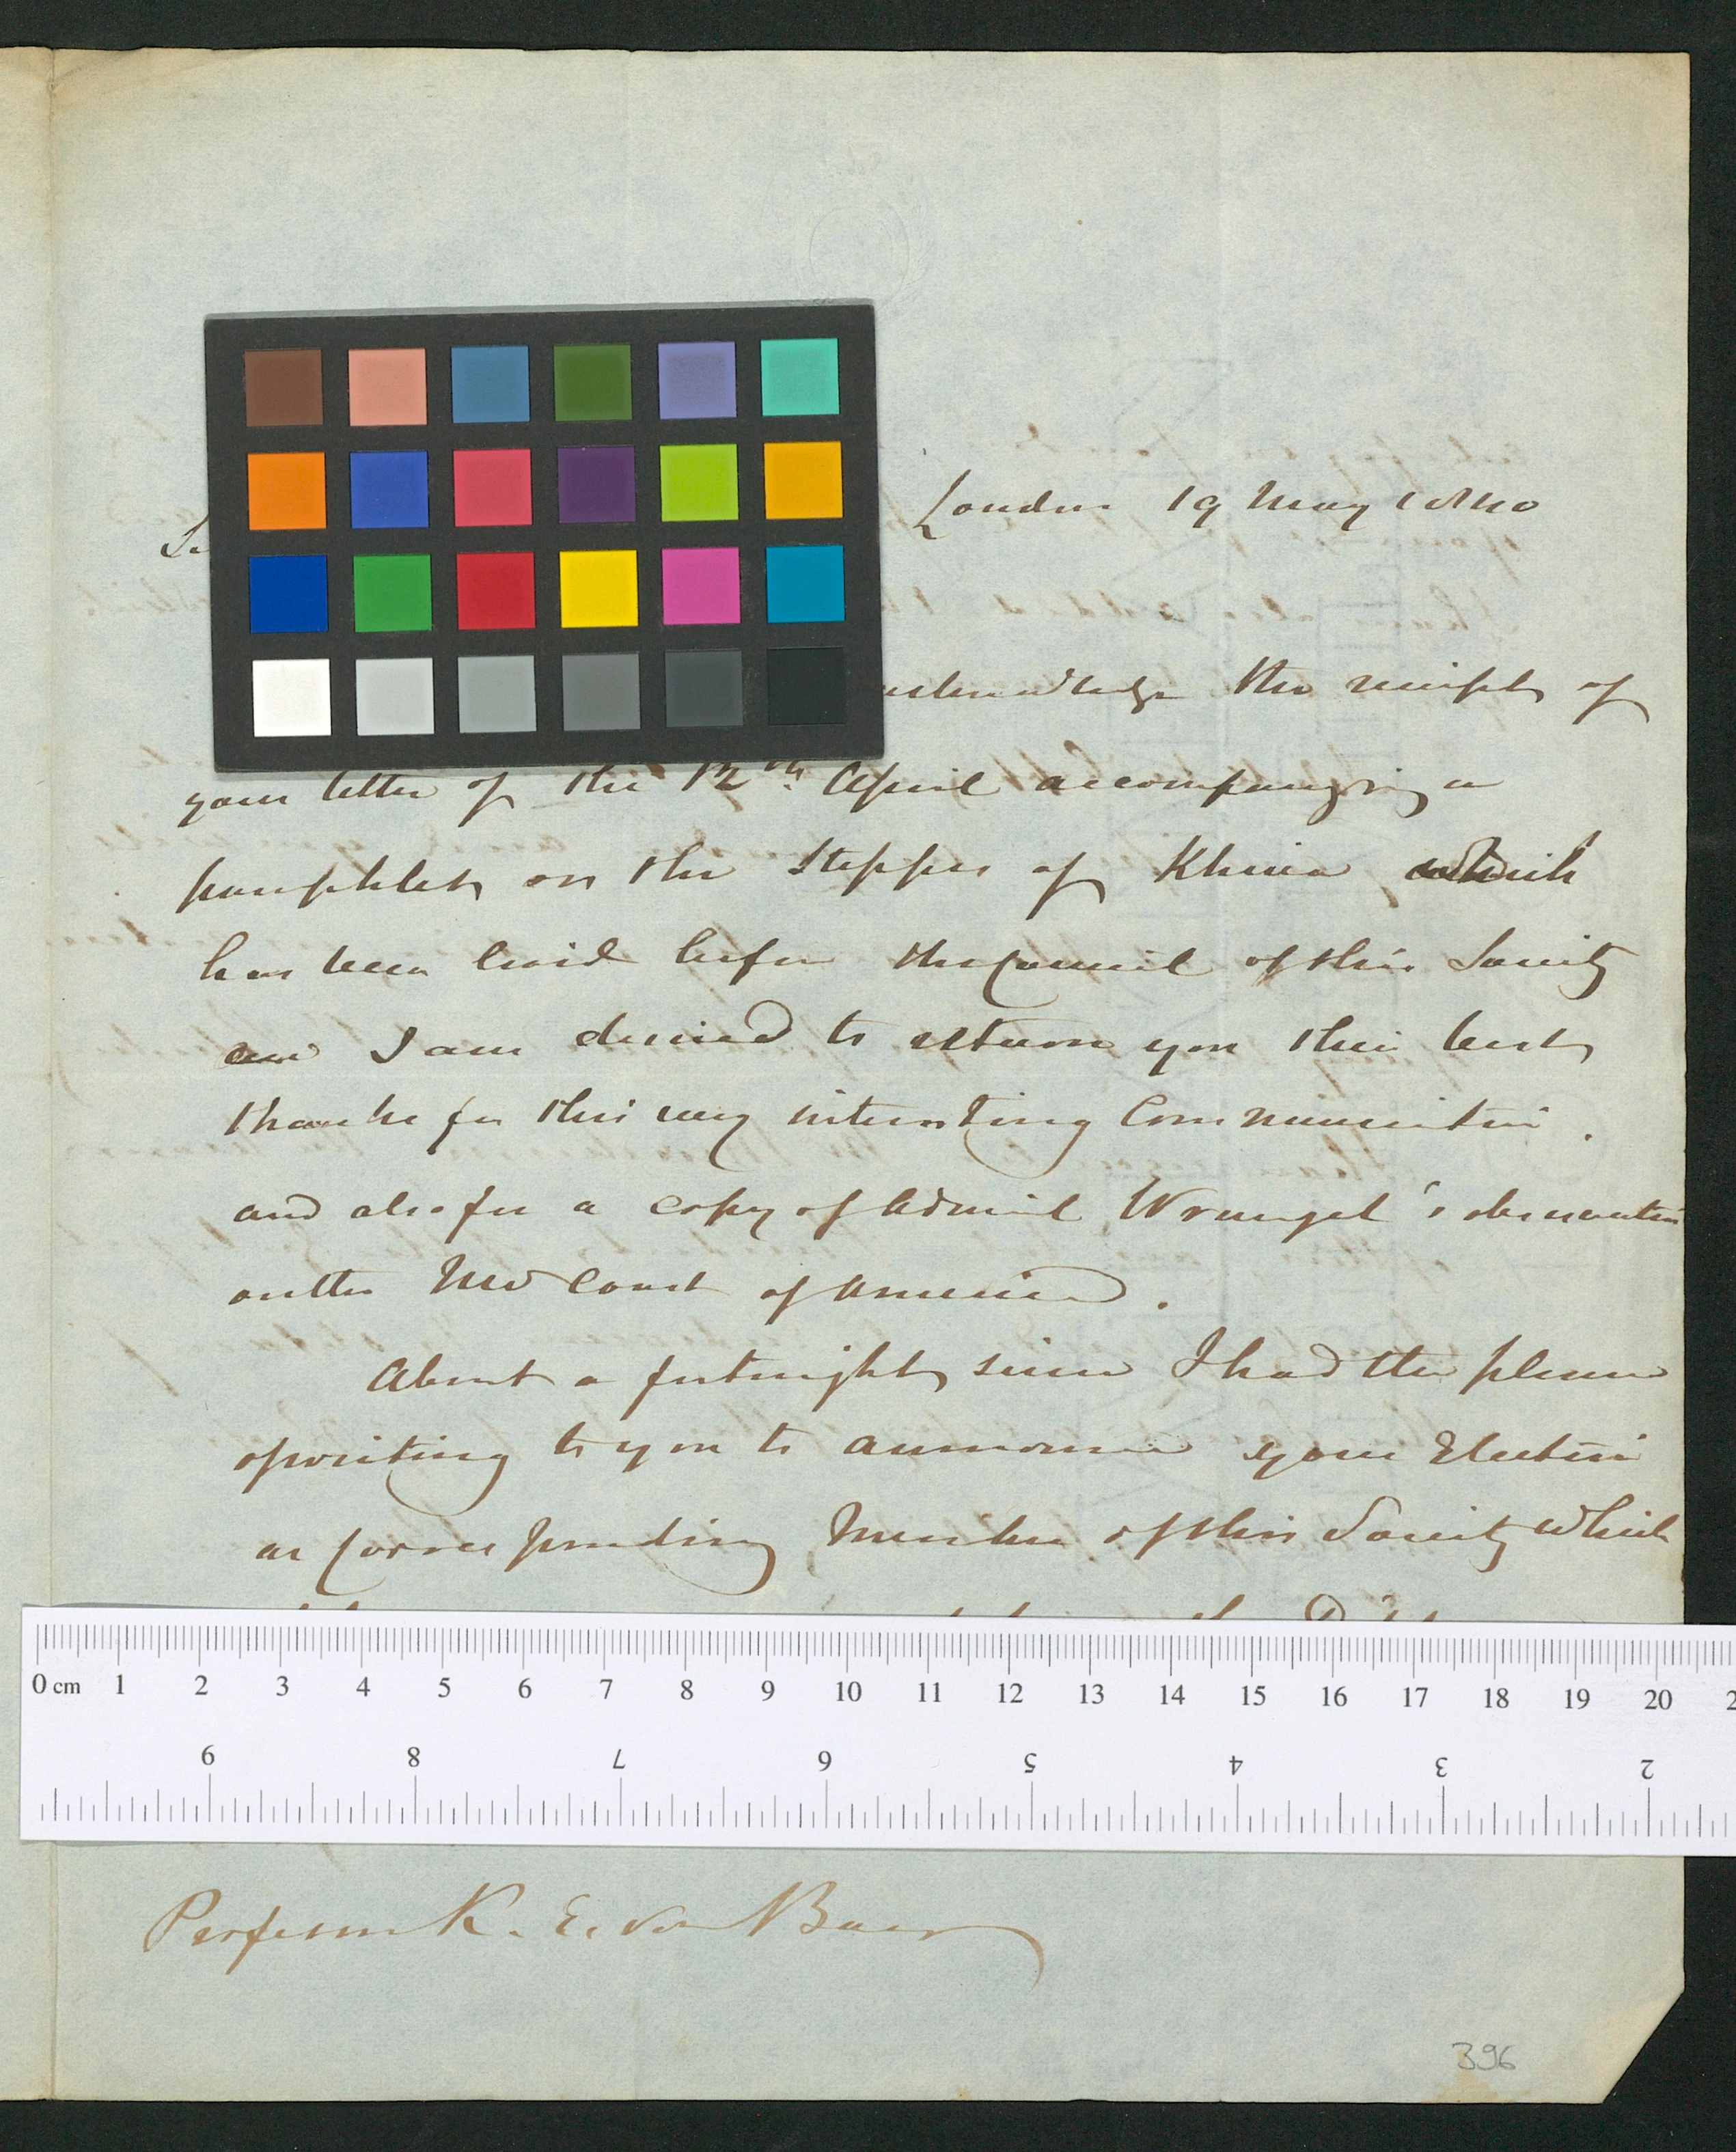 London 19 May 1840
the receipt of
your letter of the 12th. April accompanying a
pamphlet on the Steppes of Khiva which
has been laid before the Council of this Society
and I am desired to return you their best
thanks for this very interesting Communication.
and also for a copy of Admiral Wrangel's observations
on the NW Coast of America.
About a fortnight since I had the pleasure
of writing to you to announce your Election
as Corresponding Member of this Society which
0 cm 1 2 3 4 5 6 7 8 9 10 11 12 13 14 15 16 17 18 19 20
9 8 7 6 5 4 3 2
Professor K. E. von Baer
396